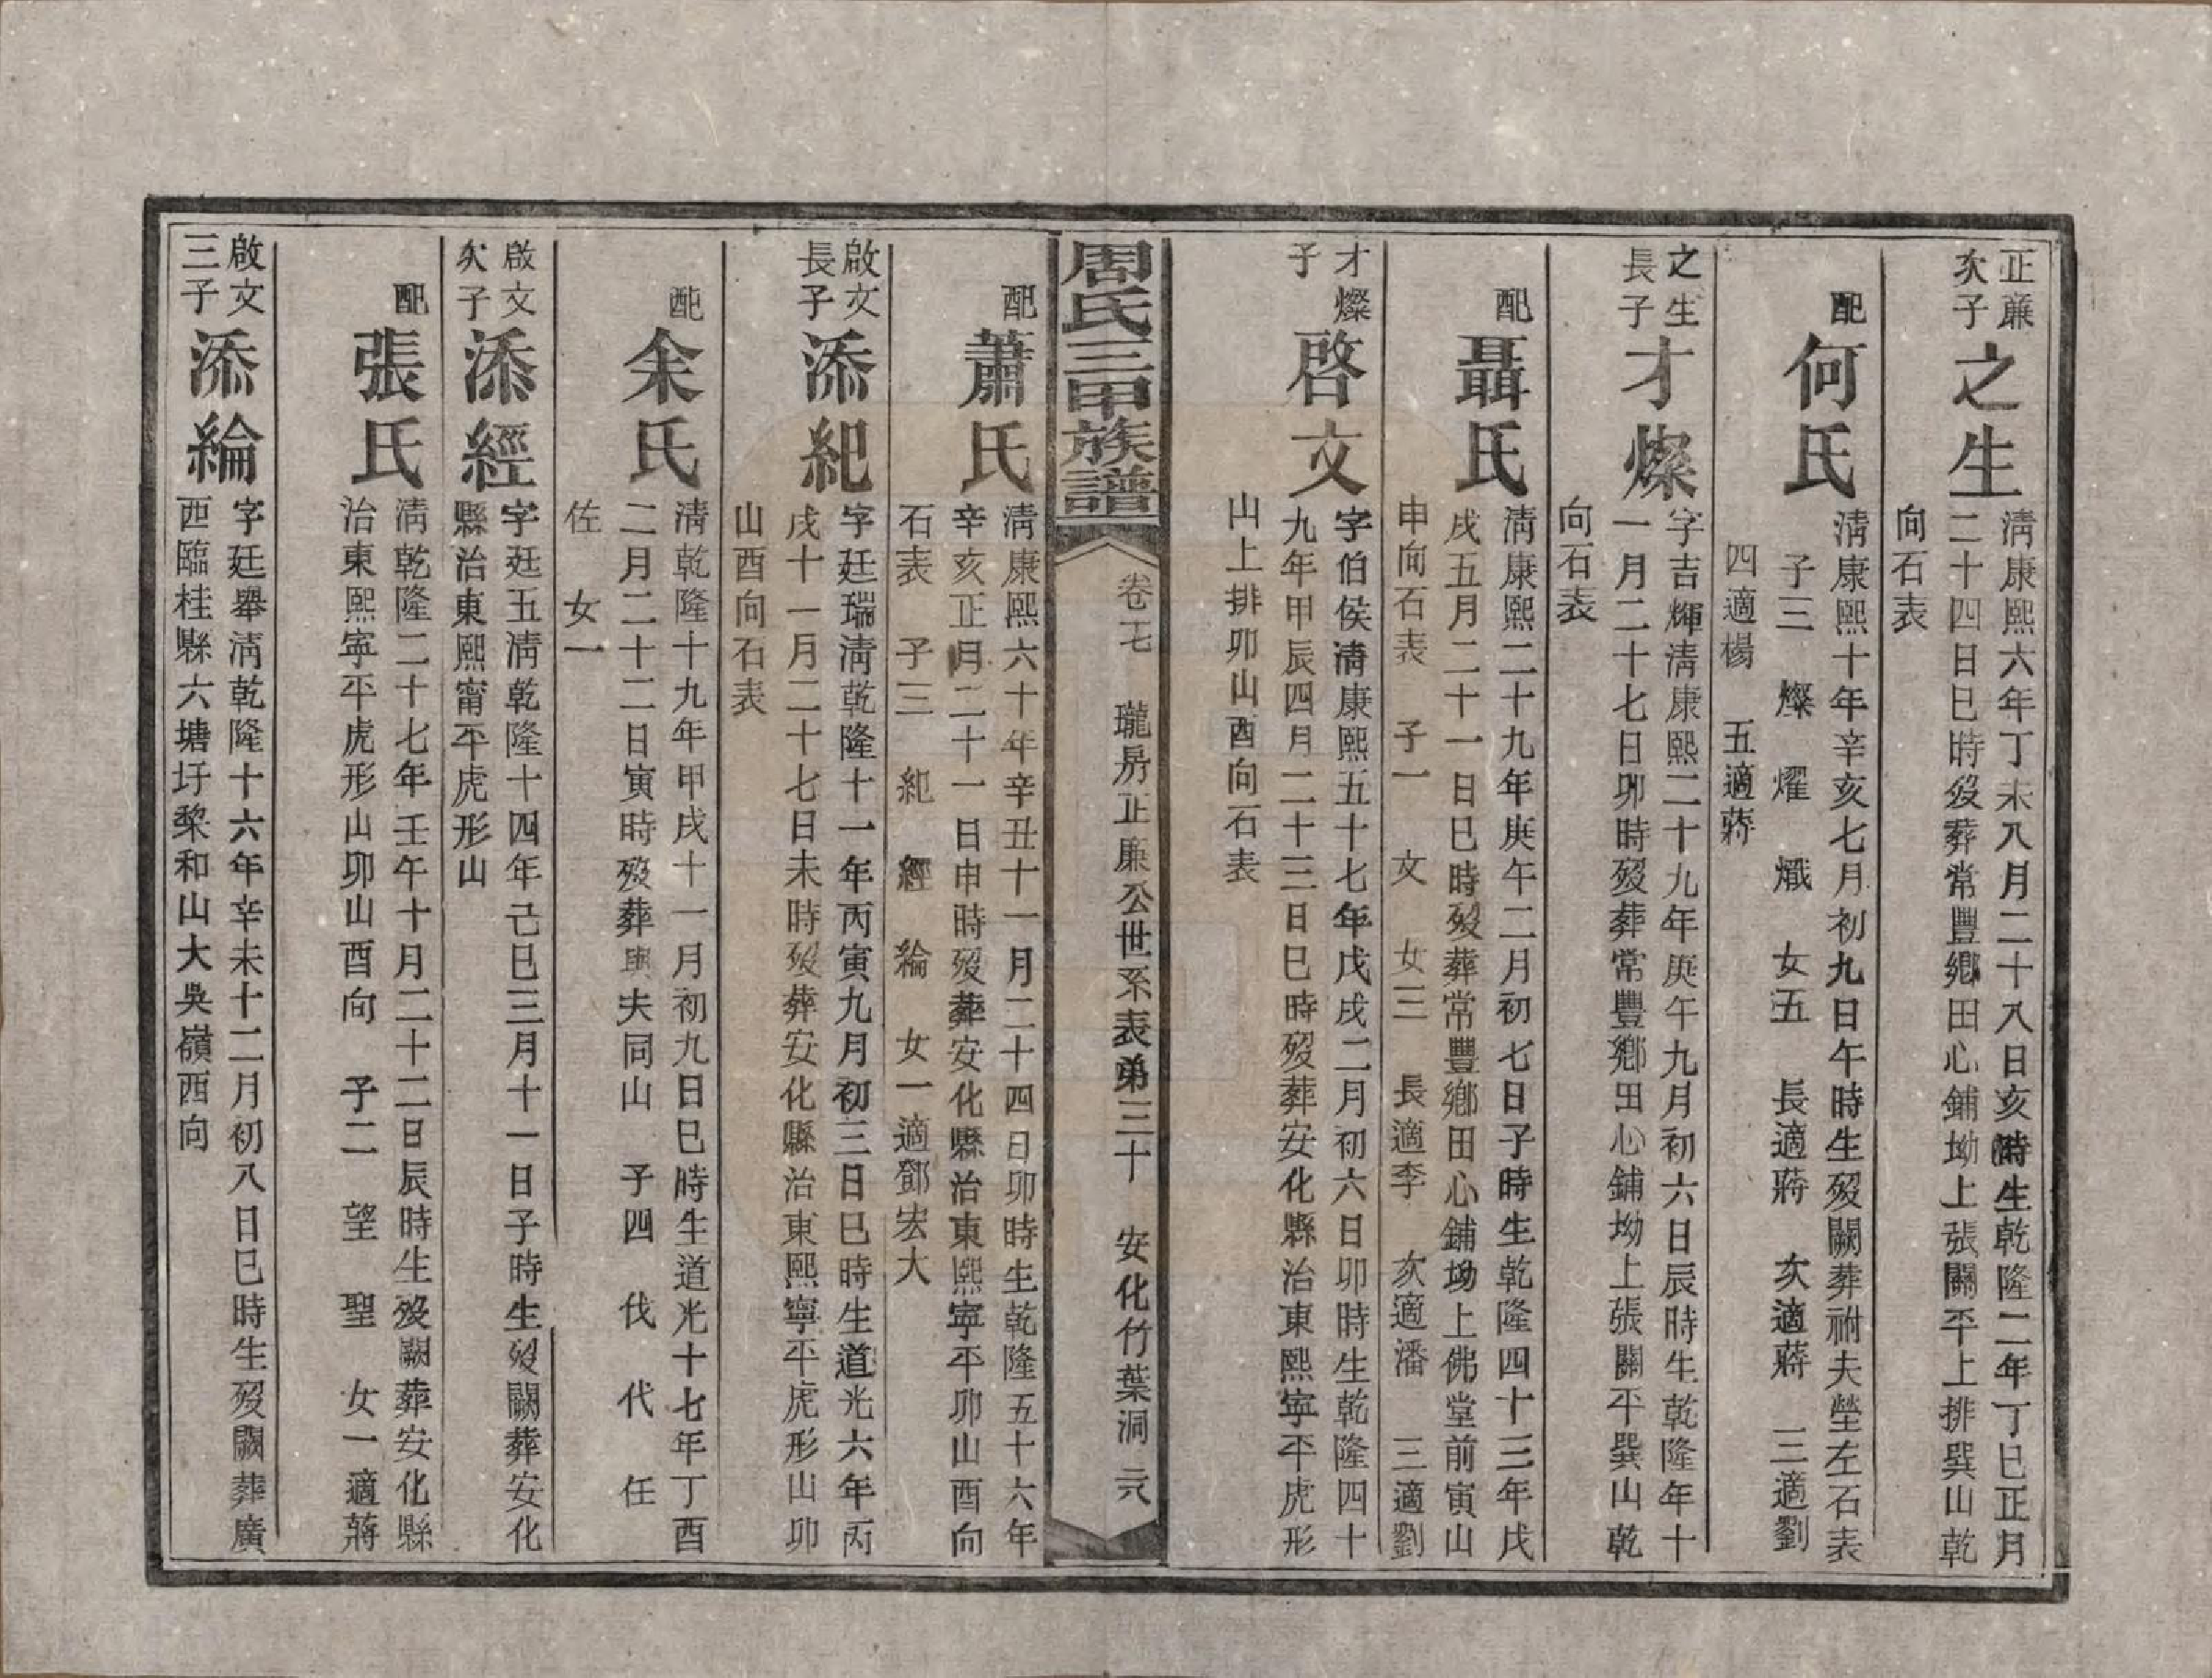 正蔗
次子
之生
清康熙六年丁未八月二十八日亥時生乾隆二年丁巳正月
二十四日巳時歿葬常豐鄉田心鋪坳上張關平上排巽山乾
向石表
配
何氏
清康熙十年辛亥七月初九日午時生歿闕葬祔夫塋左石表
子三 燦 燿 熾 女五 長適蔣 次適蔣 三適劉
四適楊 五適蔣
之生
長子
才燦
字吉輝清康熙二十九年庚午九月初六日辰時生乾隆年十
一月二十七日卯時歿葬常豐鄉田心鋪坳上張關平巽山乾
向石表
配
聶氏
清康熙二十九年庚午二月初七日子時生乾隆四十三年戊
戌五月二十一日巳時歿葬常豐鄉田心鋪坳上佛堂前寅山
申向石表 子一 文 女三 長適李 次適潘 三適劉
才燦
子
啓文
字伯侯清康熙五十七年戊戌二月初六日卯時生乾隆四十
九年甲辰四月二十三日巳時歿葬安化縣治東熙寧平虎形
山上排卯山酉向石表
周氏三甲族譜
卷七 瓏房正廉公世系表弟三十 安化竹葉洞
配
蕭氏
清康熙六十年辛丑十一月二十四日卯時生乾隆五十六年
辛亥正月二十一日申時歿葬安化縣治東熙寧平卯山酉向
石表 子三 紀 經 綸 女一適鄧宏大
啟文
長子
添紀
字廷瑞清乾隆十一年丙寅九月初三日巳時生道光六年丙
戌十一月二十七日未時歿葬安化縣治東熙寧平虎形山卯
山酉向石表
配
余氏
清乾隆十九年甲戌十一月初九日巳時生道光十七年丁酉
二月二十二日寅時歿葬與夫同山 子四 伐 代 任
佐 女一
啟文
次子
添經
字廷五清乾隆十四年己巳三月十一日子時生歿闕葬安化
縣治東熙甯平虎形山
配
張氏
清乾隆二十七年壬午十月二十二日辰時生歿闕葬安化縣
治東熙寧平虎形山卯山酉向 子二 望 聖 女一適蔣
啟文
三子
添綸
字廷舉清乾隆十六年辛未十二月初八日巳時生歿闕葬廣
西臨桂縣六塘圩黎和山大吳嶺西向